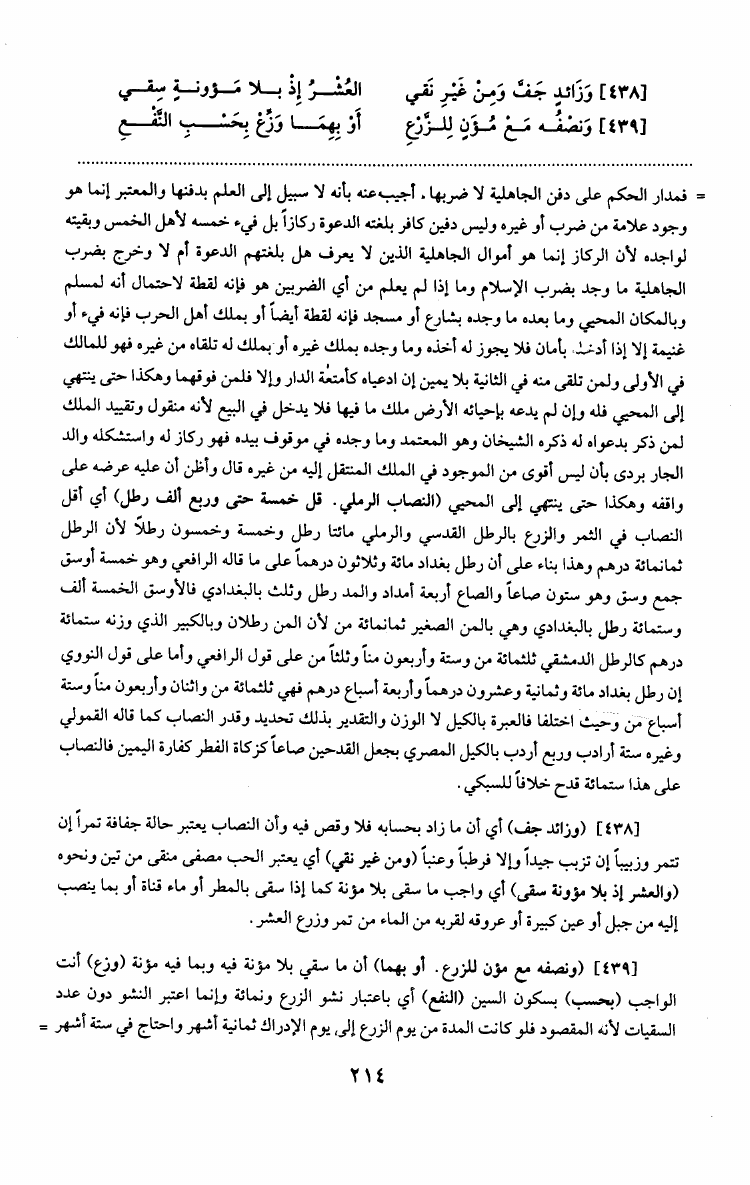 [٤٣٨] وَزَائدٍ جَفَّ وَمِنْ غَيْرِ نَقي العُشْـــرُ إِذْ بـــلا مَـــؤونـــةٍ سِقـــي
[٤٣٩] وَنصْفُـــه مَـــعْ مُـــؤَنٍ لِلـــزَّرْعِ أَوْ بِهِمَـــا وَزِّعْ بِحَسْـــبِ النَّفْـــعِ
= فمدار الحكم على دفن الجاهلية لا ضربها. أجيب عنه بأنه لا سبيل إلى العلم بدفنها والمعتبر إنما هو
وجود علامة من ضرب أو غيره وليس دفين كافر بلغته الدعوة ركازاً بل فيء خمسه لأهل الخمس وبقيته
لواجده لأن الركاز إنما هو أموال الجاهلية الذين لا يعرف هل بلغتهم الدعوة أم لا وخرج بضرب
الجاهلية ما وجد بضرب الإسلام وما إذا لم يعلم من أي الضربين هو فإنه لقطة لاحتمال أنه لمسلم
وبالمكان المحيي وما بعده ما وجده بشارع أو مسجد فإنه لقطة أيضاً أو بملك أهل الحرب فإنه فيء أو
غنيمة إلا إذا بأمان فلا يجوز له أخذه وما وجده بملك غيره أو بملك له تلقاه من غيره فهو للمالك
في الأولى ولمن تلقى منه في الثانية بلا يمين إن ادعياه كأمتعة الدار وإلا فلمن فوقهما وهكذا حتى ينتهي
إلى المحيي فله وإن لم يدعه بإحيائه الأرض ملك ما فيها فلا يدخل في البيع لأنه منقول وتقييد الملك
لمن ذكر بدعواه له ذكره الشيخان وهو المعتمد وما وجده في موقوف بيده فهو ركاز له واستشكله والد
الجار بردي بأن ليس أقوى من الموجود في الملك المنتقل إليه من غيره قال وأظن أن عليه عرضه على
واقفه وهكذا حتى ينتهي إلى المحيي (النصاب الرملي. قل خمسة حتى وربع ألف رطل) أي أقل
النصاب في الثمر والزرع بالرطل القدسي والرملي مائتا رطل وخمسة وخمسون رطلاً لأن الرطل
ثمانمائة درهم وهذا بناء على أن رطل بغداد مائة وثلاثون درهماً على ما قاله الرافعي وهو خمسة أوسق
جمع وسق وهو ستون صاعاً والصاع أربعة أمداد والمد رطل وثلث بالبغدادي فالأوسق الخمسة ألف
وستمائة رطل بالبغدادي وهي بالمن الصغير ثمانمائة من لأن المن رطلان وبالكبير الذي وزنه ستمائة
درهم كالرطل الدمشقي ثلثمائة من وستة وأربعون مناً وثلثاً من على قول الرافعي وأما على قول النووي
إن رطل بغداد مائة وثمانية وعشرون درهماً وأربعة أسباع درهم فهي ثلثمائة من واثنان وأربعون مناً وستة
أسباع من وحيث اختلفا فالعبرة بالكيل لا الوزن والتقدير بذلك تحديد وقدر النصاب كما قاله القمولي
وغيره ستة أرادب وربع أردب بالكيل المصري بجعل القدحين صاعاً كزكاة الفطر كفارة اليمين فالنصاب
على هذا ستمائة قدح خلافاً للسبكي.
[٤٣٨] (وزائد جف) أي أن ما زاد بحسابه فلا وقص فيه وأن النصاب يعتبر حالة جفافة تمراً إن
تتمر وزبيباً إن تزبب جيداً وإلا فرطباً وعنباً (ومن غير نقي) أي يعتبر الحب مصفى منقى من تين ونحوه
(والعشر إذ بلا مؤونة سقى) أي واجب ما سقى بلا مؤنة كما إذا سقى بالمطر أو ماء قناة أو بما ينصب
إليه من جبل أو عين كبيرة أو عروقه لقربه من الماء من تمر وزرع العشر.
[٤٣٩] (ونصفه مع مؤن للزرع. أو بهما) أن ما سقي بلا مؤنة فيه وبما فيه مؤنة (وزع) أنت
الواجب (بحسب) بسكون السين (النفع) أي باعتبار نشو الزرع ونمائة وإنما اعتبر النشو دون عدد
السقيات لأنه المقصود فلو كانت المدة من يوم الزرع إلى يوم الإدراك ثمانية أشهر واحتاج في ستة أشهر =
٢١٤